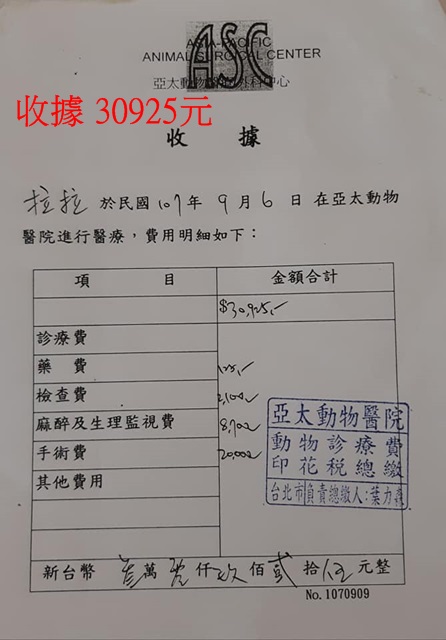 ASC
ASIA-PACIFIC
ANIMAL SURGICAL CENTER
亞太動物醫院外科中心
收據 30925元
收 據
拉拉 於民國107年 9月6日 在亞太動物
醫院進行醫療，費用明細如下：
項 目 金額合計
$30,925.-
診療費
藥 費 125.-
檢查費 2,100
麻醉及生理監視費 8,700
手術費 20,000
其他費用
亞太動物醫院
動物診療費
印花稅總繳
台北市負責總繳人：葉力森
新台幣 參萬 零仟玖佰貳拾伍元整
No. 1070909